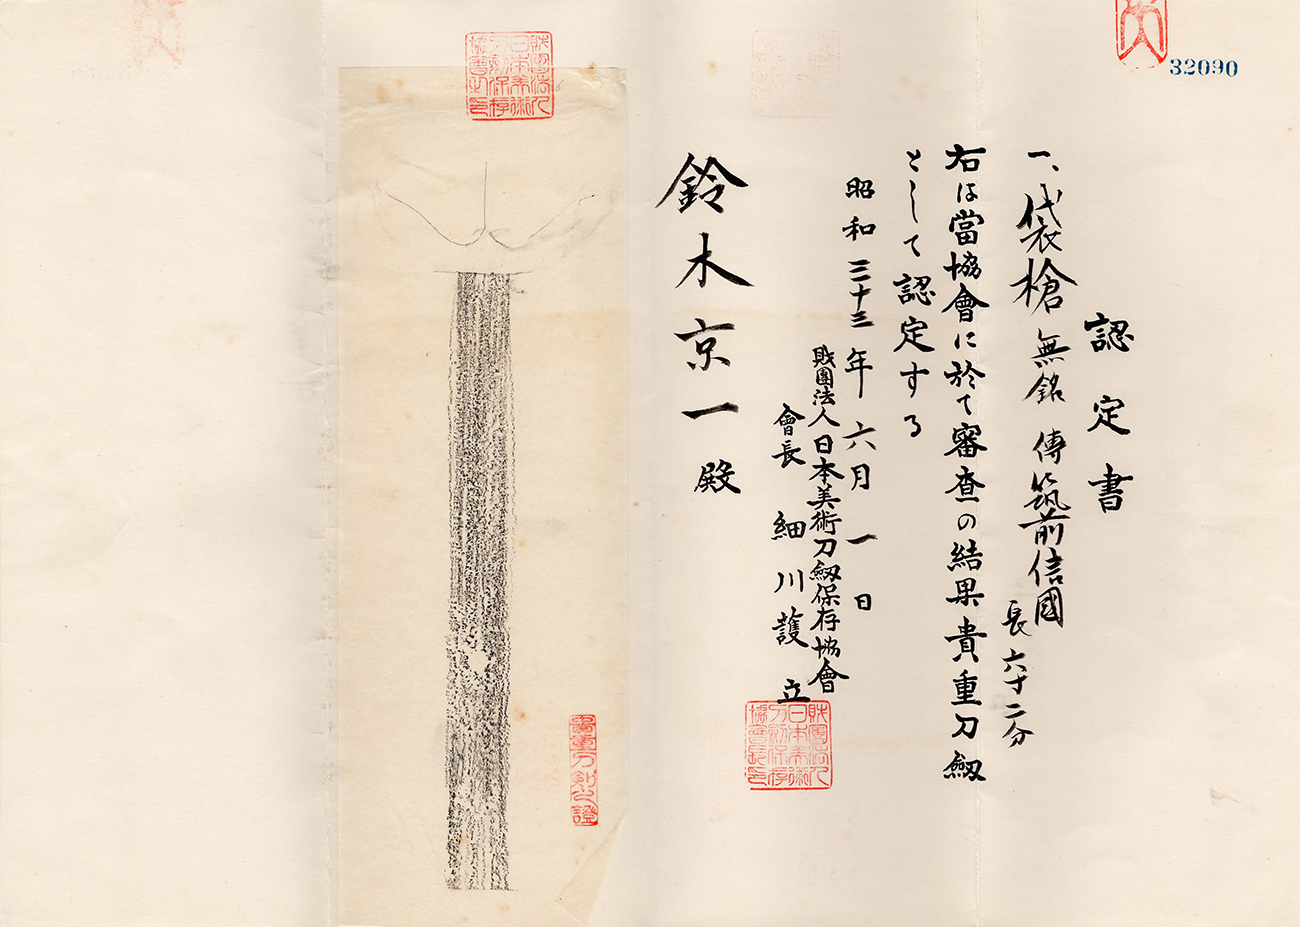 32090
認定書
一、袋槍 無銘 傳筑前信國
長六寸二分
右は當協會に於て審査の結果貴重刀劔
として認定する
昭和三十三年六月一日
財團法人日本美術刀劔保存協會
會長 細川護立
鈴木京一殿
財團法人日本美術刀剣保存協會長印
財團法人日本美術刀剣保存協會長印
貴重刀剣之證